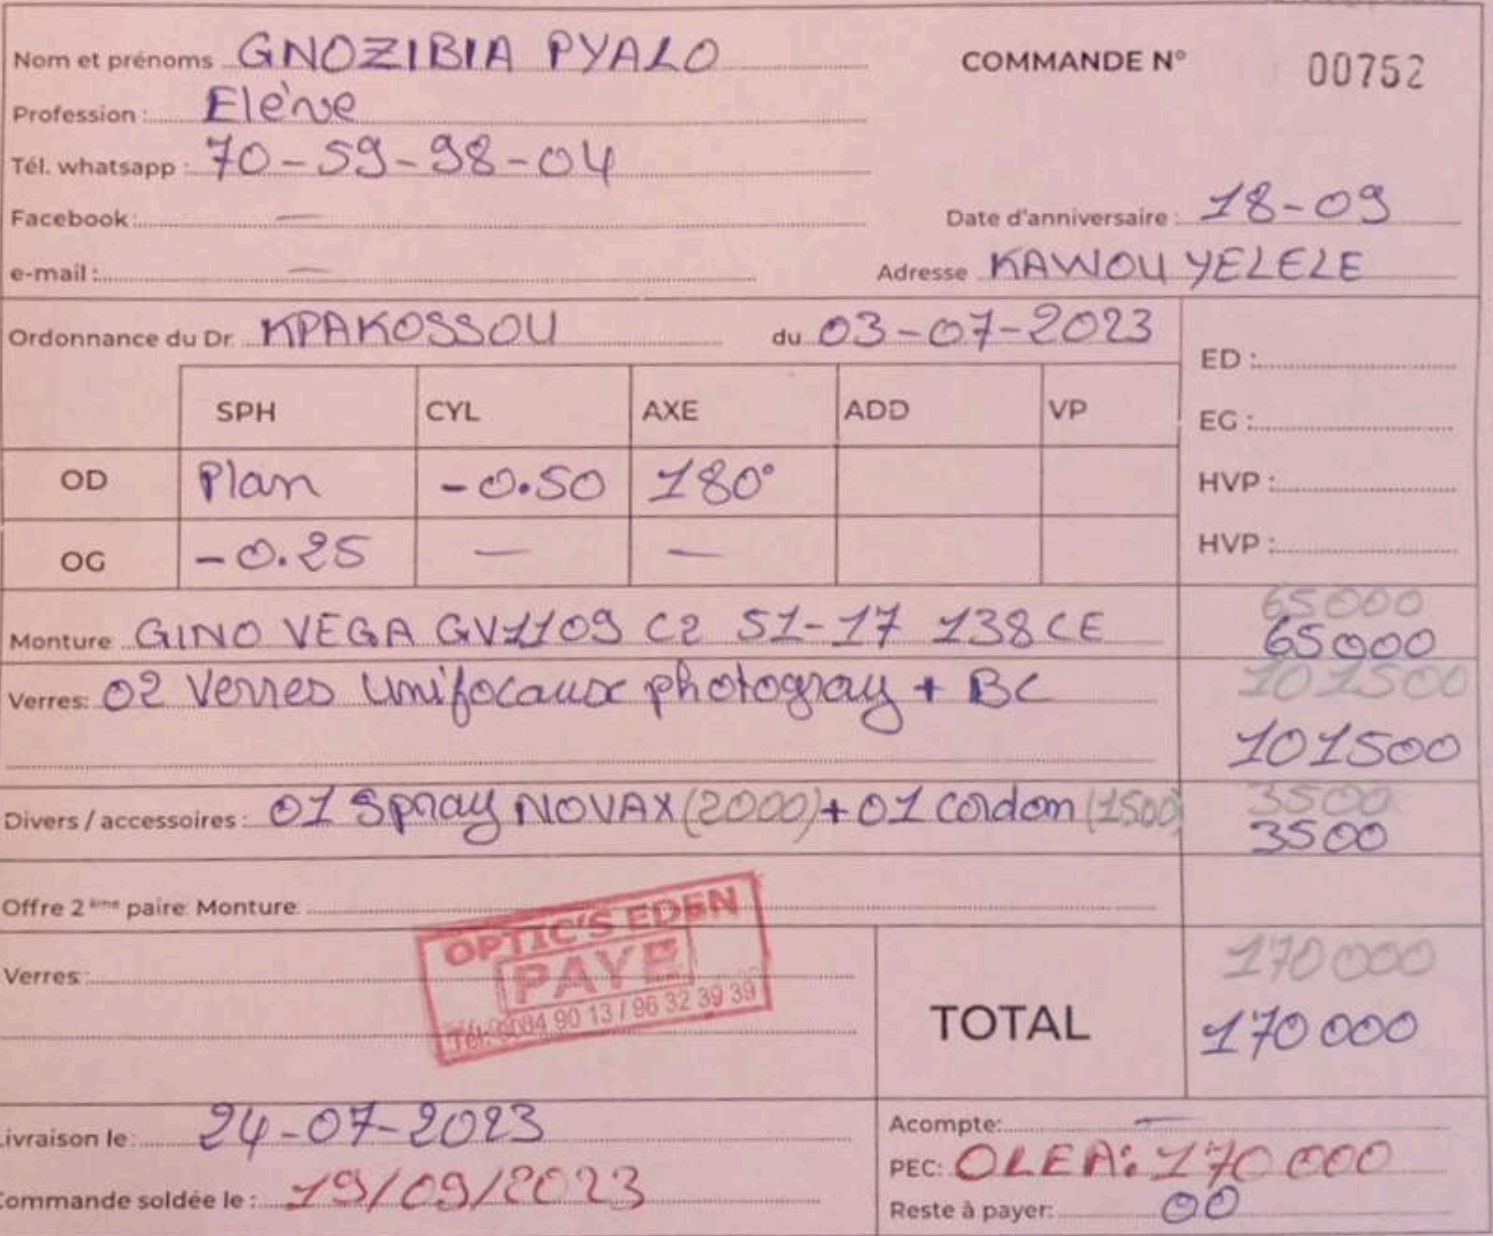 Nom et prénoms GNOZIBIA PYALO
COMMANDE N° 00752
Profession : Elève
Tél. whatsapp : 70-59-98-04
Facebook : —
Date d'anniversaire : 18-09
e-mail : —
Adresse KAWOU YELELE
Ordonnance du Dr. KPAKOSSOU du 03-07-2023
ED :
SPH CYL AXE ADD VP
EG :
OD Plan -0.50 180°
HVP :
OG -0.25 — —
HVP :
65000
Monture GINO VEGA GV1109 C2 51-17 138 CE 65000
Verres: 02 Verres Unifocaux photogray + BC 101500
101500
Divers / accessoires : 01 Spray NOVAX (2000) + 01 Cordon (1500) 3500
3500
Offre 2ème paire: Monture:
OPTIC'S EDEN
PAYE
90 13 / 96 32 39 39
Verres:
170 000
TOTAL 170 000
Livraison le : 24-07-2023
Acompte: —
PEC: OLEA: 170 000
Commande soldée le : 19/09/2023
Reste à payer: 00